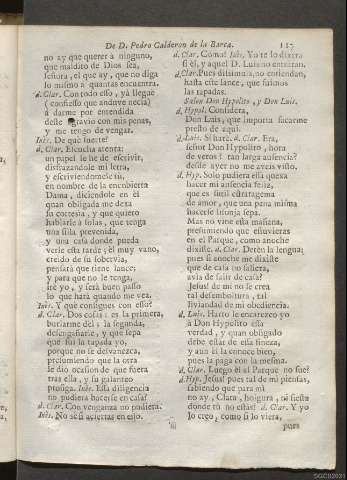 De D. Pedro Calderon de la Barca. 117
no ay que querer a ninguno,
que maldito de Dios sea,
señora, el que ay, que no diga
lo mismo à quantas encuentra.
d. Clar. Con todo esso, yà lleguè
(confiesso que anduve necia)
à darme por entendida
deste agravio con mis penas,
y me tengo de vengar.
Inès. De què suerte?
d. Clar. Escucha atenta:
un papel le he de escrivir,
disfrazandole mi letra,
y escriviendomele tù,
en nombre de la encubierta
Dama, diciendole en èl
quan obligada me dexa
su cortesia, y que quiero
hablarle à solas, que tenga
una silla prevenida,
y una casa donde pueda
verle esta tarde; èl muy vano,
creìdo de su sobervia,
pensarà que tiene lance;
y para que no le tenga,
irè yo, y serà buen passo
lo que harà quando me vea.
Inès. Y que consigues con esso?
d. Clar. Dos cosas: es la primera,
burlarme dèl; la segunda,
desengañarle, y que sepa
que fui la tapada yo,
porque no se desvanezca,
presumiendo que la otra
le diò ocasion de que fuera
tras ella, y su galanteo
prosiga. Inès. Essa diligencia
no pudiera hacerse en casa?
d. Clar. Con venganza no pudiera.
Inès. No sè si aciertas en esso.
d. Clar. Como? Inès. Yo te lo dixera
si èl, y aquel D. Luis no entràran.
d. Clar. Pues dissimula, no entiendan,
hasta este lance, que fuimos
las tapadas.
Salen Don Hypolito, y Don Luis.
d. Hypol. Considera,
Don Luis, que importa sacarme
presto de aqui.
d. Luis. Si harè. d. Clar. Era,
señor Don Hypolito, hora
de veros? tan larga ausencia?
desde ayer no me aveis visto.
d. Hyp. Solo pudiera essa quexa
hacer mi ausencia feliz,
que es facil estratagema
de amor, que una pena misma
hacerse lisonja sepa.
Mas no vine esta mañana,
presumiendo que estuvieras
en el Parque, como anoche
dixiste. d. Clar. Detèn la lengua;
pues si anoche me dixiste
que de casa no saliera,
avia de salir de casa?
Jesus! de mì no se crea
tal desemboltura, tal
liviandad de mi obediencia.
d. Luis. Harto le encarezco yo
à Don Hypolito essa
verdad, y quan obligado
debe estar de essa fineza,
y aun èl la conoce bien,
pues la paga con la mesma.
d. Clar. Luego èl al Parque no fue?
d. Hyp. Jesus! pues tal de mì piensas,
sabiendo que para mì
no ay, Clara, holgura, ni fiesta
donde tù no estàs! d. Clar. Y yo
lo creo, como si lo viera,
para
SGCB2021